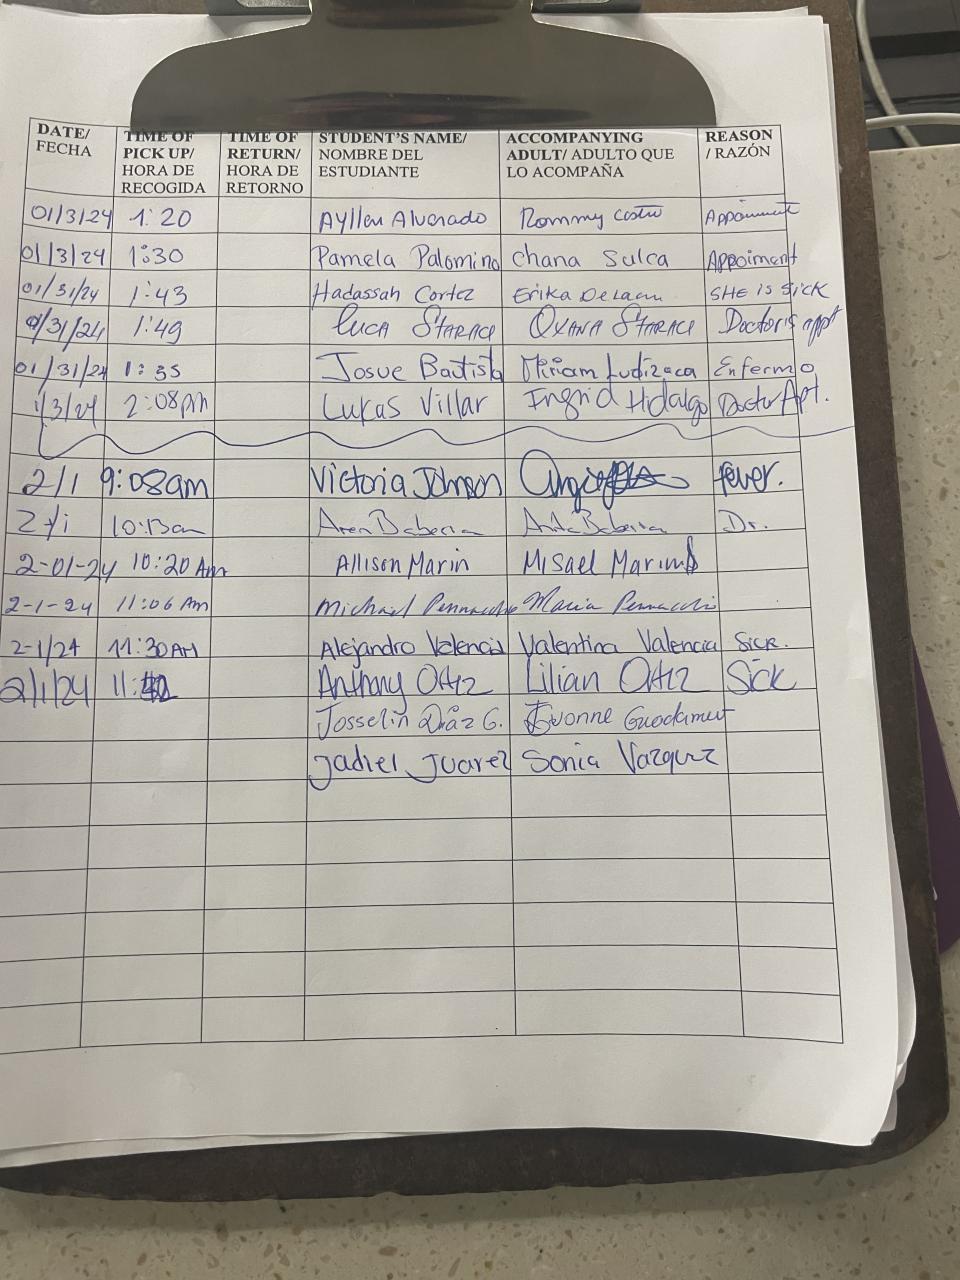 DATE/ FECHA TIME OF PICK UP/ HORA DE RECOGIDA TIME OF RETURN/ HORA DE RETORNO STUDENT'S NAME/ NOMBRE DEL ESTUDIANTE ACCOMPANYING ADULT/ ADULTO QUE LO ACOMPAÑA REASON / RAZÓN
01/3/24 1:20 Ayllen Alvarado Rommy Castro Appointment
01/3/24 1:30 Pamela Palomino Chana Sulca Appoiment
01/31/24 1:43 Hadassah Cortez Erika SHE is sick
01/31/24 1:49 Luca STARACE OXANA STARACE Doctor's appt
01/31/24 1:35 Josue Bautista Miriam Ludizaca Enfermo
1/3/24 2:08pm Lukas Villar Ingrid Hidalgo Doctor Apt.
2/1 9:08am Victoria Johnson fever.
2/1 Dr.
2-01-24 10:20 Am Allison Marin Misael Marin
2-1-24 11:06 Am Michael Maria
2-1/24 11:30AM Alejandro Valencia Valentina Valencia Sick.
2/1/24 Anthony Ortiz Lilian Ortiz Sick
Josselin Díaz G. Ivonne
Jadiel Juarez Sonia Vazquez